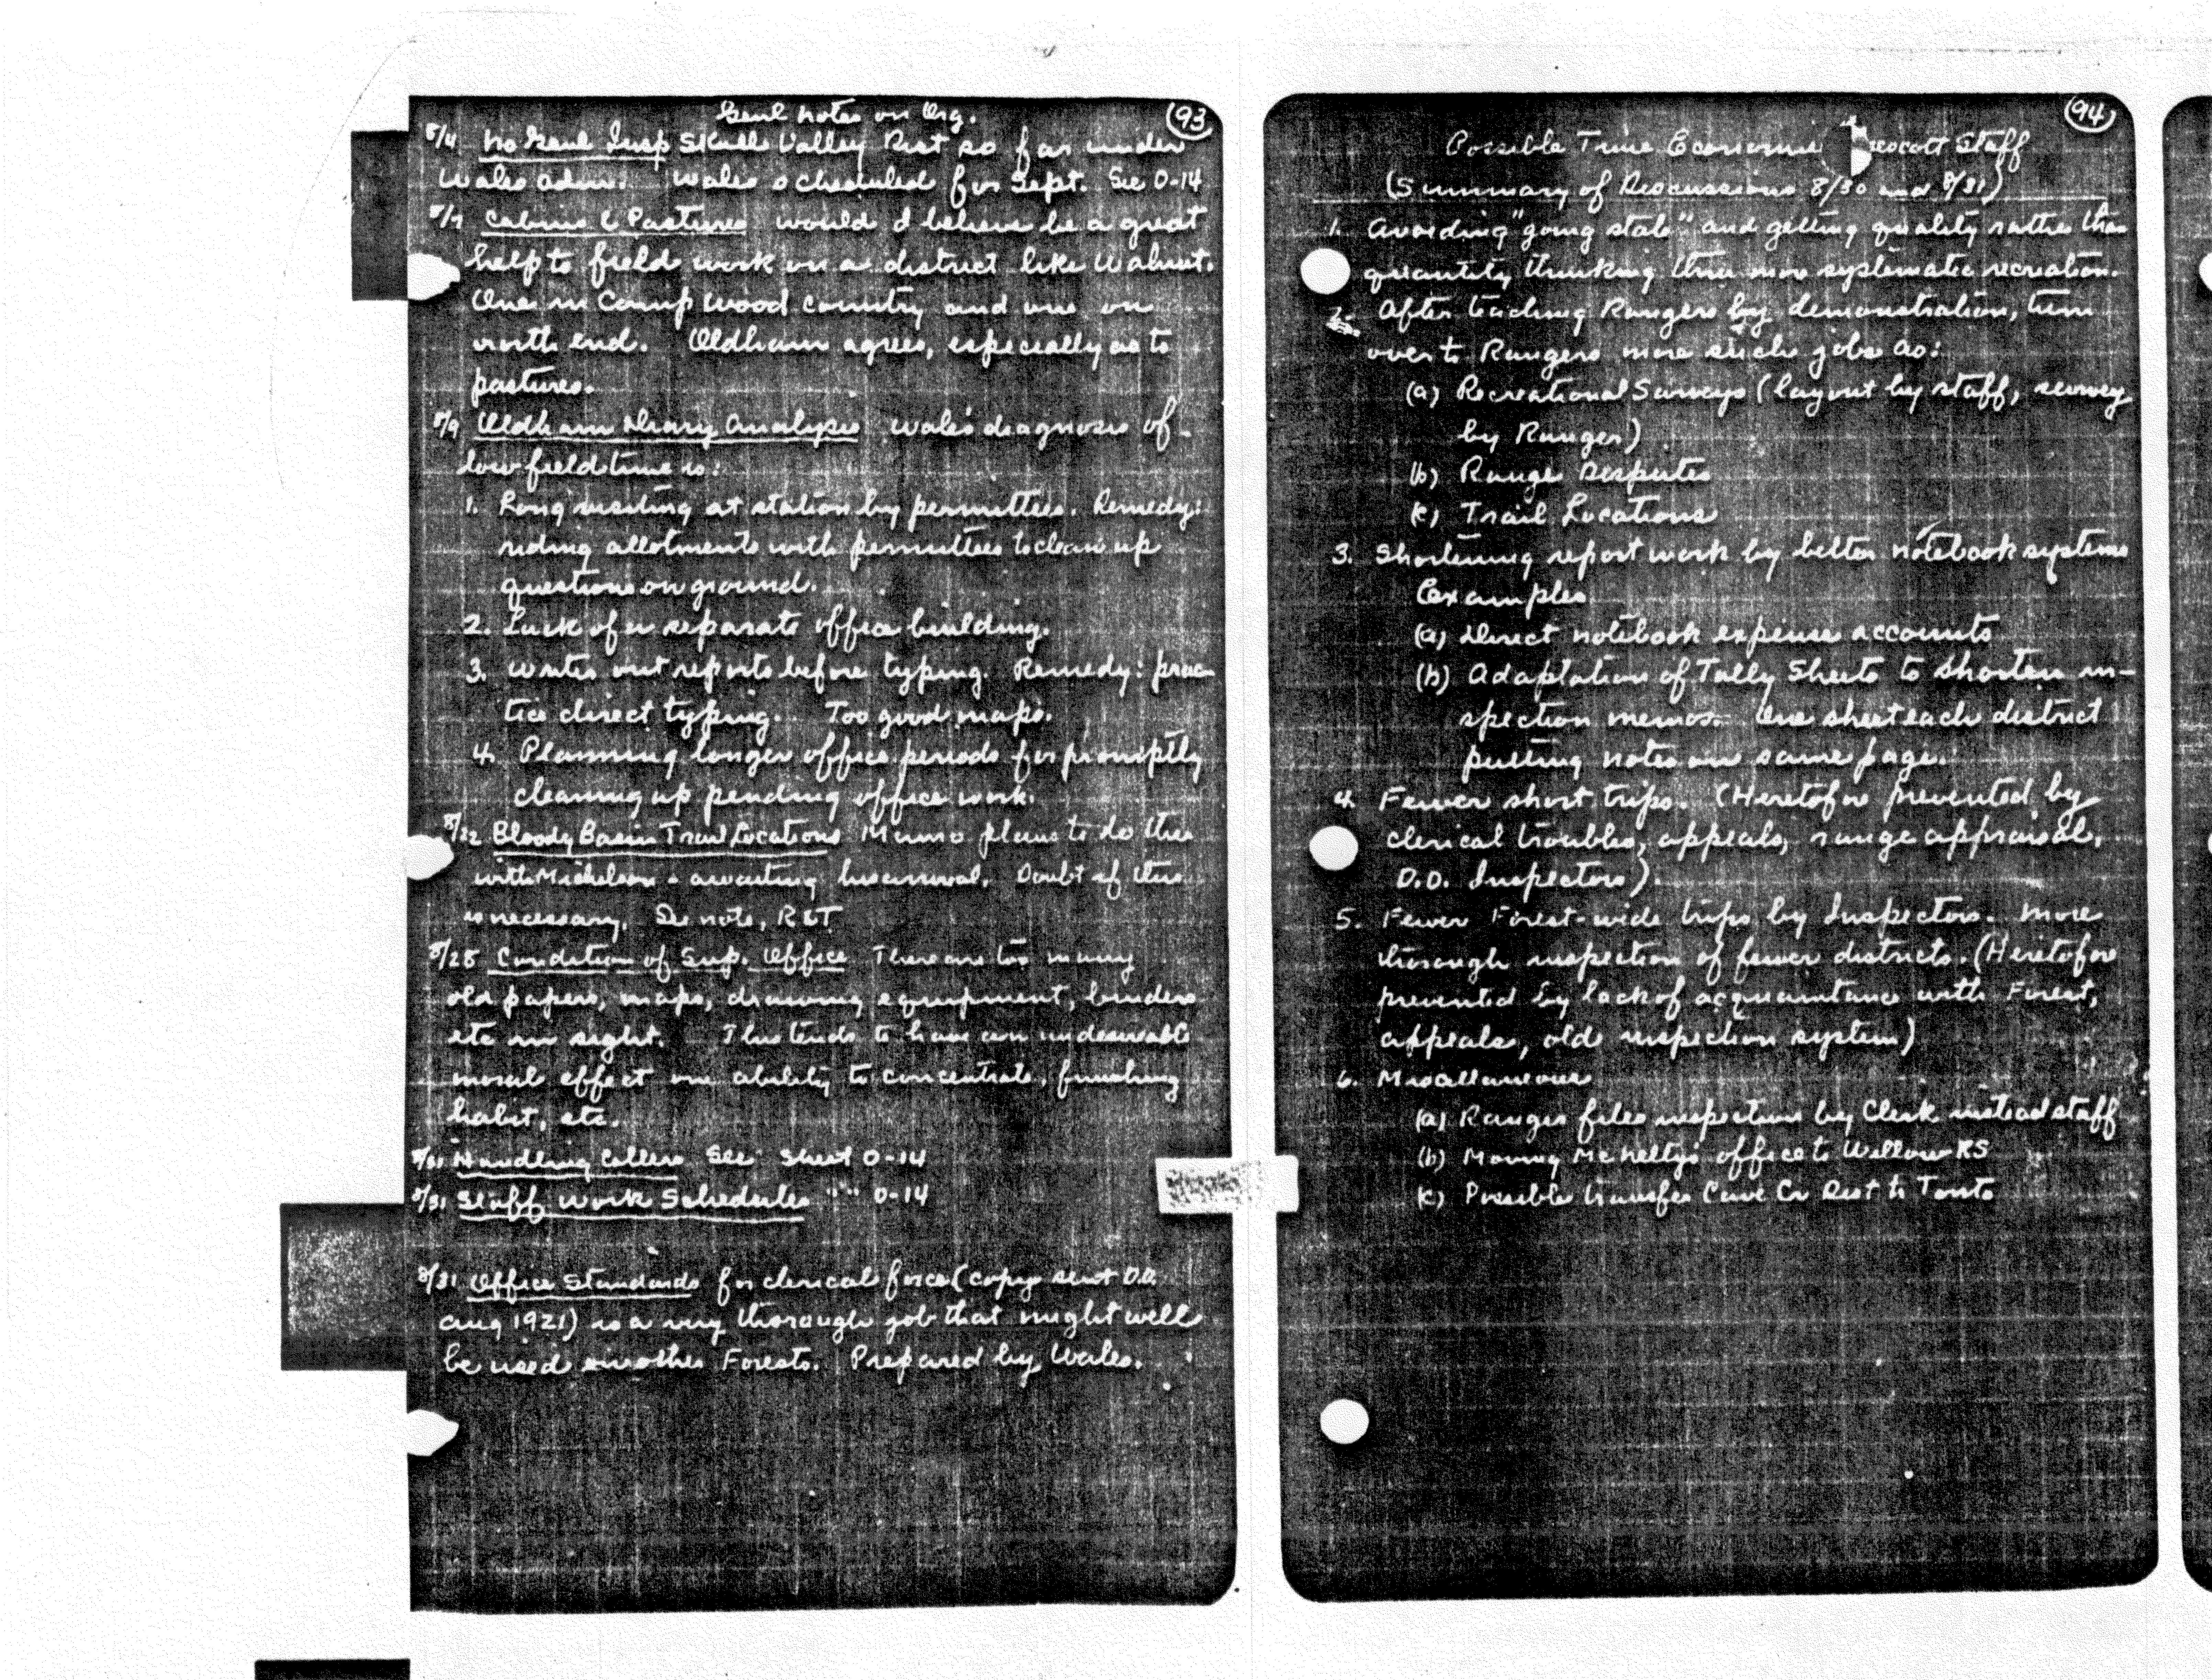 93
Genl notes on Org.
8/4 No Genl Insp Skull Valley Dist so far under
Wales adm. Wales scheduled for Sept. See O-14
8/7 Cabins & Pastures would I believe be a great
help to field work on a district like Walnut.
One in Camp Wood country and one on
north end. Oldham agrees, especially as to
pastures.
8/9 Oldham Diary Analysis Wales diagnosis of
low field time is:
1. Long visiting at station by permittees. Remedy:
riding allotments with permittees to clean up
questions on ground.
2. Lack of a separate office building.
3. Writes out reports before typing. Remedy: prac
tice direct typing. Too good maps.
4. Planning longer office periods for promptly
cleaning up pending office work.
8/22 Bloody Basin Trail Locations Munro plans to do this
with Michelson - awaiting his arrival. Doubt if this
is necessary. See note, R&T
8/28 Condition of Sup. Office There are too many
old papers, maps, drawing equipment, binders
etc in sight. This tends to have an undesirable
moral effect on ability to concentrate, finishing
habit, etc.
8/31 Handling Callers See Sheet O-14
8/31 Staff Work Schedules " " O-14
8/31 Office Standards for clerical force (copy sent D.O.
Aug 1921) is a very thorough job that might well
be used on other Forests. Prepared by Wales.
94
Possible Time Economie rescott Staff
(Summary of Discussions 8/30 and 8/31)
1. Avoiding "going stale" and getting quality rather than
quantity thinking thru more systematic recreation.
2. After teaching Rangers by demonstration, turn
over to Rangers more such jobs as:
(a) Recreational Surveys (layout by staff, survey
by Ranger)
(b) Range Disputes
(c) Trail Locations
3. Shortening report work by better notebook systems
Examples
(a) Direct notebook expense accounts
(b) Adaptation of Tally Sheets to shorten in-
spection memos. One sheet each district
putting notes on same page.
4. Fewer short trips. (Heretofore prevented by
clerical troubles, appeals, range appraisal,
D.O. Inspectors).
5. Fewer Forest-wide trips by Inspectors. More
thorough inspection of fewer districts. (Heretofore
prevented by lack of acquaintance with Forest,
appeals, old inspection system)
6. Miscellaneous
(a) Ranger files inspection by Clerk instead staff
(b) Moving McNelty's office to Willow RS
(c) Possible transfer Cave Cr Dist to Tonto